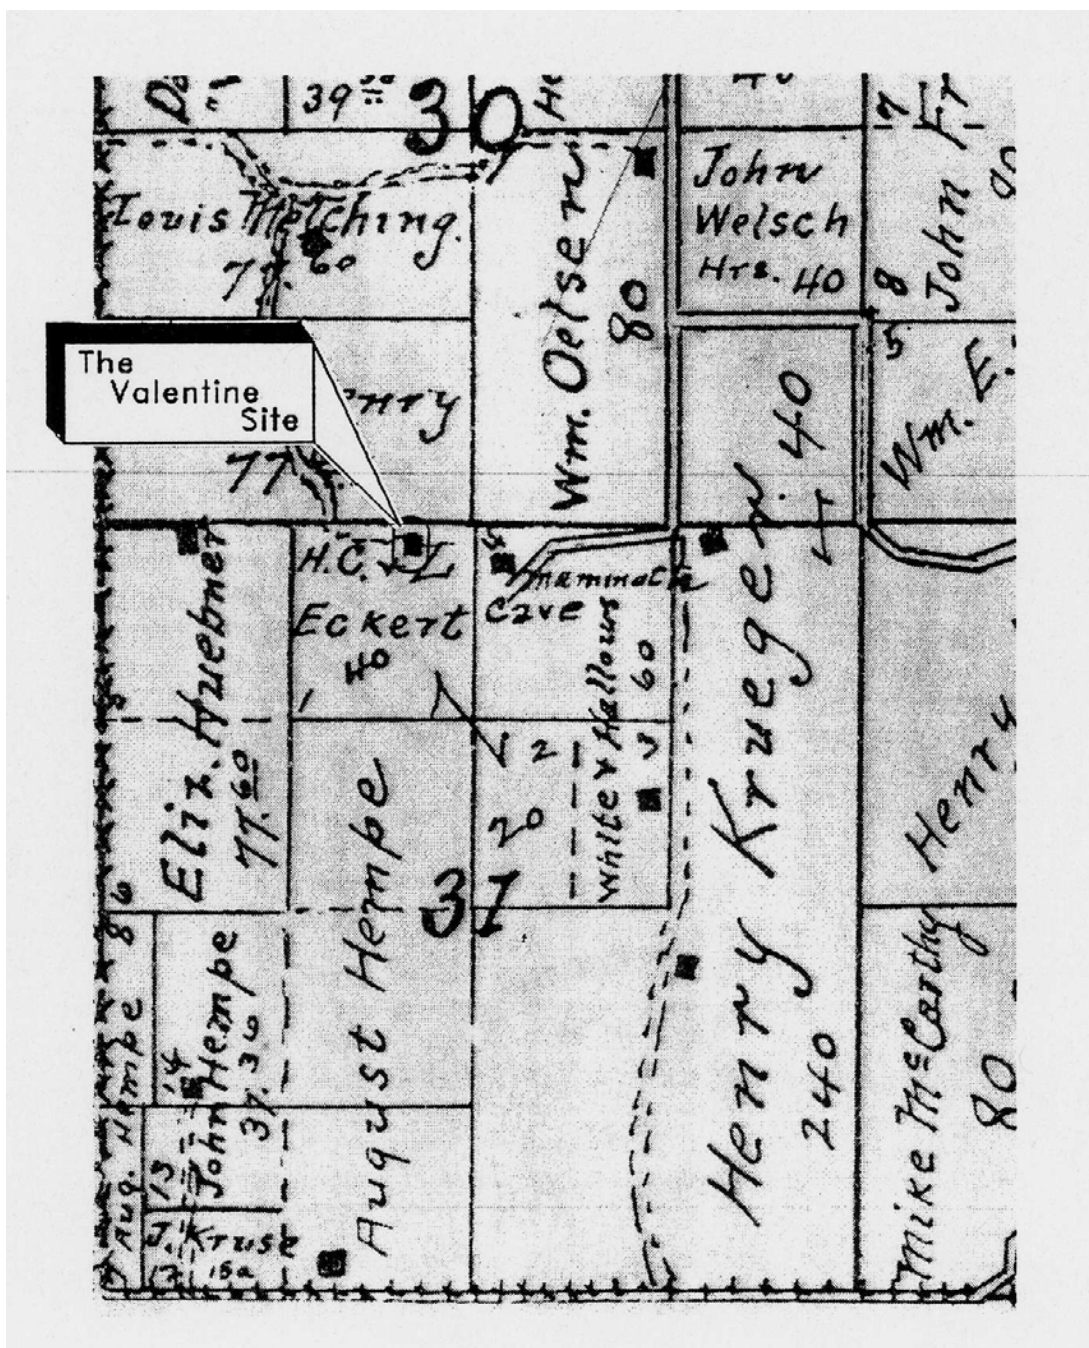 39
30
Louis Metching.
77. 60
Wm. Oelsen
80
John
Welsch
Hrs. 40
7
8
5
John Fr
The
Valentine
Site
enry
77
Wm. E.
40
H.C.
Eckert
40
Mammoth
Cave
White & Hallows
60
2
20
Eliz. Huebner
77.60
31
August Hempe
Henry Krueger
240
Henry
Mike McCarthy
80
8
14
John Hempe
37.36
Aug. Hempe
13
John Hempe
37.
J. Kruse
15a